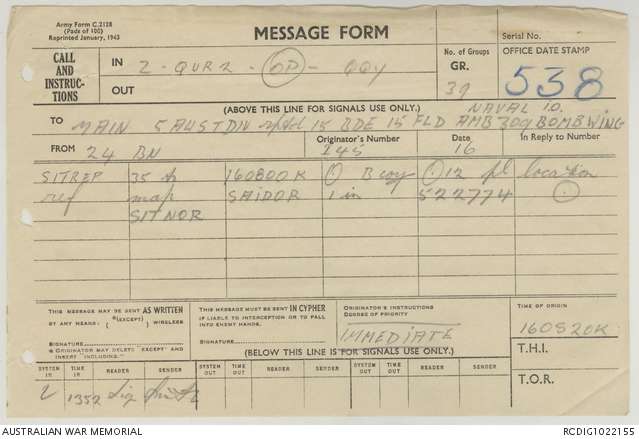 Army Form C.2128
(Pads of 100)
Reprinted January, 1943
MESSAGE FORM
Serial No.
CALL
AND
INSTRUC-
TIONS
IN Z - QUR2 - OP - QQY
OUT
No. of Groups
GR.
39
OFFICE DATE STAMP
538
(ABOVE THIS LINE FOR SIGNALS USE ONLY.)
NAVAL I.O.
TO MAIN 5 AUST DIV rptd 15 BDE 15 FLD AMB 309 BOMB WING
FROM 24 BN
Originator's Number
145
Date
16
In Reply to Number
SITREP 35 160800K B coy 12 pl location
ref map SAIDOR 1 in 522774
SITNOR
THIS MESSAGE MAY BE SENT AS WRITTEN
BY ANY MEANS. ( *(EXCEPT) ) WIRELESS
SIGNATURE
* ORIGINATOR MAY DELETE "EXCEPT" AND
INSERT "INCLUDING."
THIS MESSAGE MUST BE SENT IN CYPHER
IF LIABLE TO INTERCEPTION OR TO FALL
INTO ENEMY HANDS.
SIGNATURE
ORIGINATOR'S INSTRUCTIONS
DEGREE OF PRIORITY
IMMEDIATE
TIME OF ORIGIN
160820K
T.H.I.
T.O.R.
(BELOW THIS LINE IS FOR SIGNALS USE ONLY.)
SYSTEM IN TIME IN READER SENDER SYSTEM OUT TIME OUT READER SENDER SYSTEM OUT TIME OUT READER SENDER
1352 Sig
AUSTRALIAN WAR MEMORIAL
RCDIG1022155